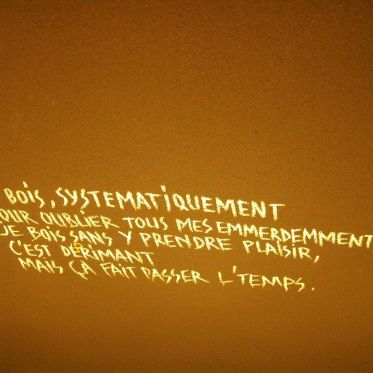 BOIS, SYSTEMATIQUEMENT
OUR OUBLIER TOUS MES EMMERDEMMENT
JE BOIS SANS Y PRENDRE PLAISIR,
C'EST DERIMANT
MAIS ÇA FAIT PASSER L'TEMPS.